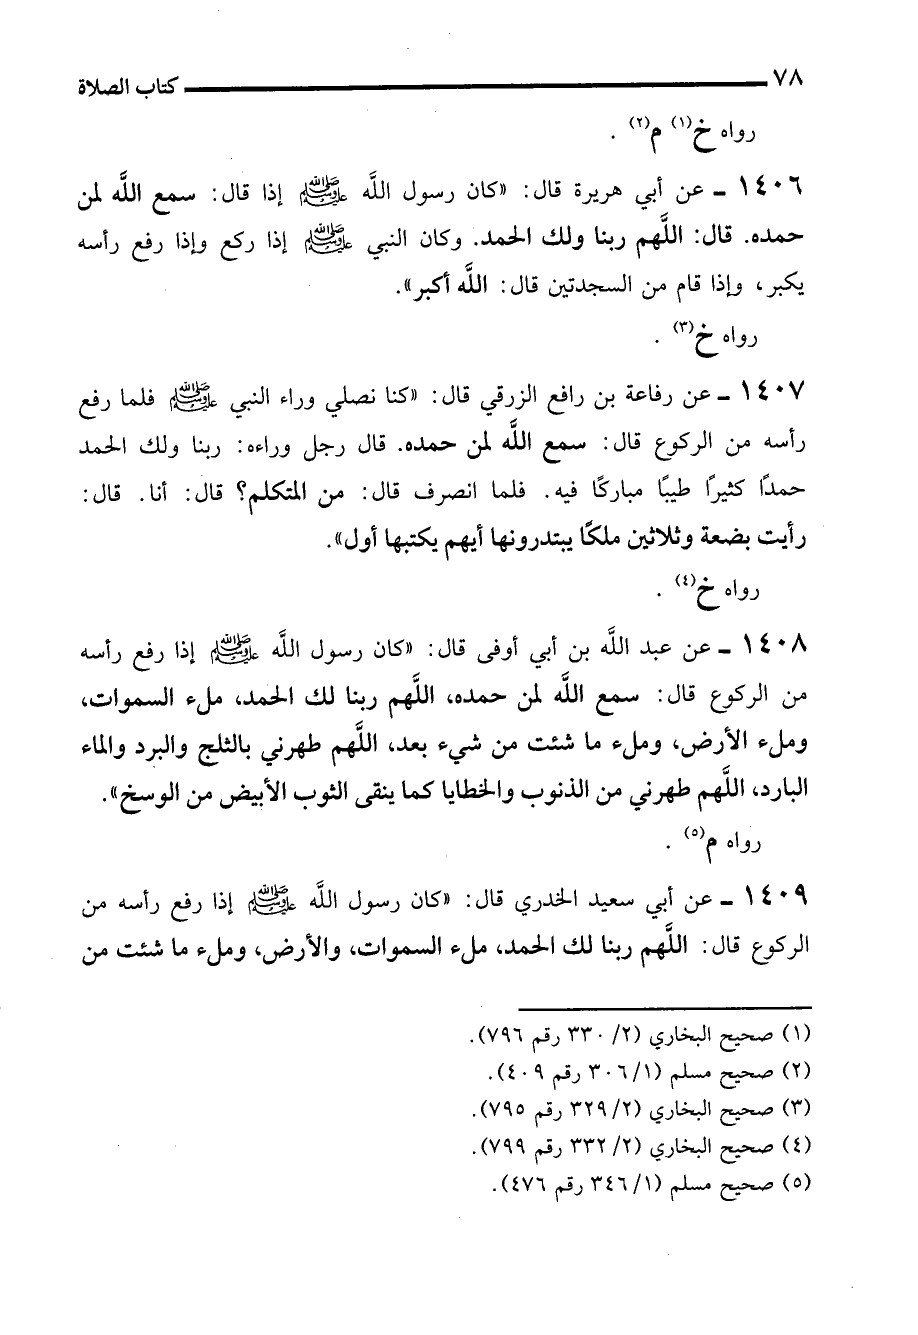 ٧٨ كتاب الصلاة
رواه خ(١) م(٢) .
١٤٠٦ ـ عن أبي هريرة قال: «كان رسول اللَّه ﷺ إذا قال: سمع اللَّه لمن
حمده. قال: اللَّهم ربنا ولك الحمد. وكان النبي ﷺ إذا ركع وإذا رفع رأسه
يكبر، وإذا قام من السجدتين قال: اللَّه أكبر».
رواه خ(٣) .
١٤٠٧ ـ عن رفاعة بن رافع الزرقي قال: «كنا نصلي وراء النبي ﷺ فلما رفع
رأسه من الركوع قال: سمع اللَّه لمن حمده. قال رجل وراءه: ربنا ولك الحمد
حمدًا كثيرًا طيبًا مباركًا فيه. فلما انصرف قال: من المتكلم؟ قال: أنا. قال:
رأيت بضعة وثلاثين ملكًا يبتدرونها أيهم يكتبها أول».
رواه خ(٤) .
١٤٠٨ ـ عن عبد اللَّه بن أبي أوفى قال: «كان رسول اللَّه ﷺ إذا رفع رأسه
من الركوع قال: سمع اللَّه لمن حمده، اللَّهم ربنا لك الحمد، ملء السموات،
وملء الأرض، وملء ما شئت من شيء بعد، اللَّهم طهرني بالثلج والبرد والماء
البارد، اللَّهم طهرني من الذنوب والخطايا كما ينقى الثوب الأبيض من الوسخ».
رواه م(٥) .
١٤٠٩ ـ عن أبي سعيد الخدري قال: «كان رسول اللَّه ﷺ إذا رفع رأسه من
الركوع قال: اللَّهم ربنا لك الحمد، ملء السموات، والأرض، وملء ما شئت من
(١) صحيح البخاري (٢/ ٣٣٠ رقم ٧٩٦).
(٢) صحيح مسلم (١/ ٣٠٦ رقم ٤٠٩).
(٣) صحيح البخاري (٢/ ٣٢٩ رقم ٧٩٥).
(٤) صحيح البخاري (٢/ ٣٣٢ رقم ٧٩٩).
(٥) صحيح مسلم (١/ ٣٤٦ رقم ٤٧٦).